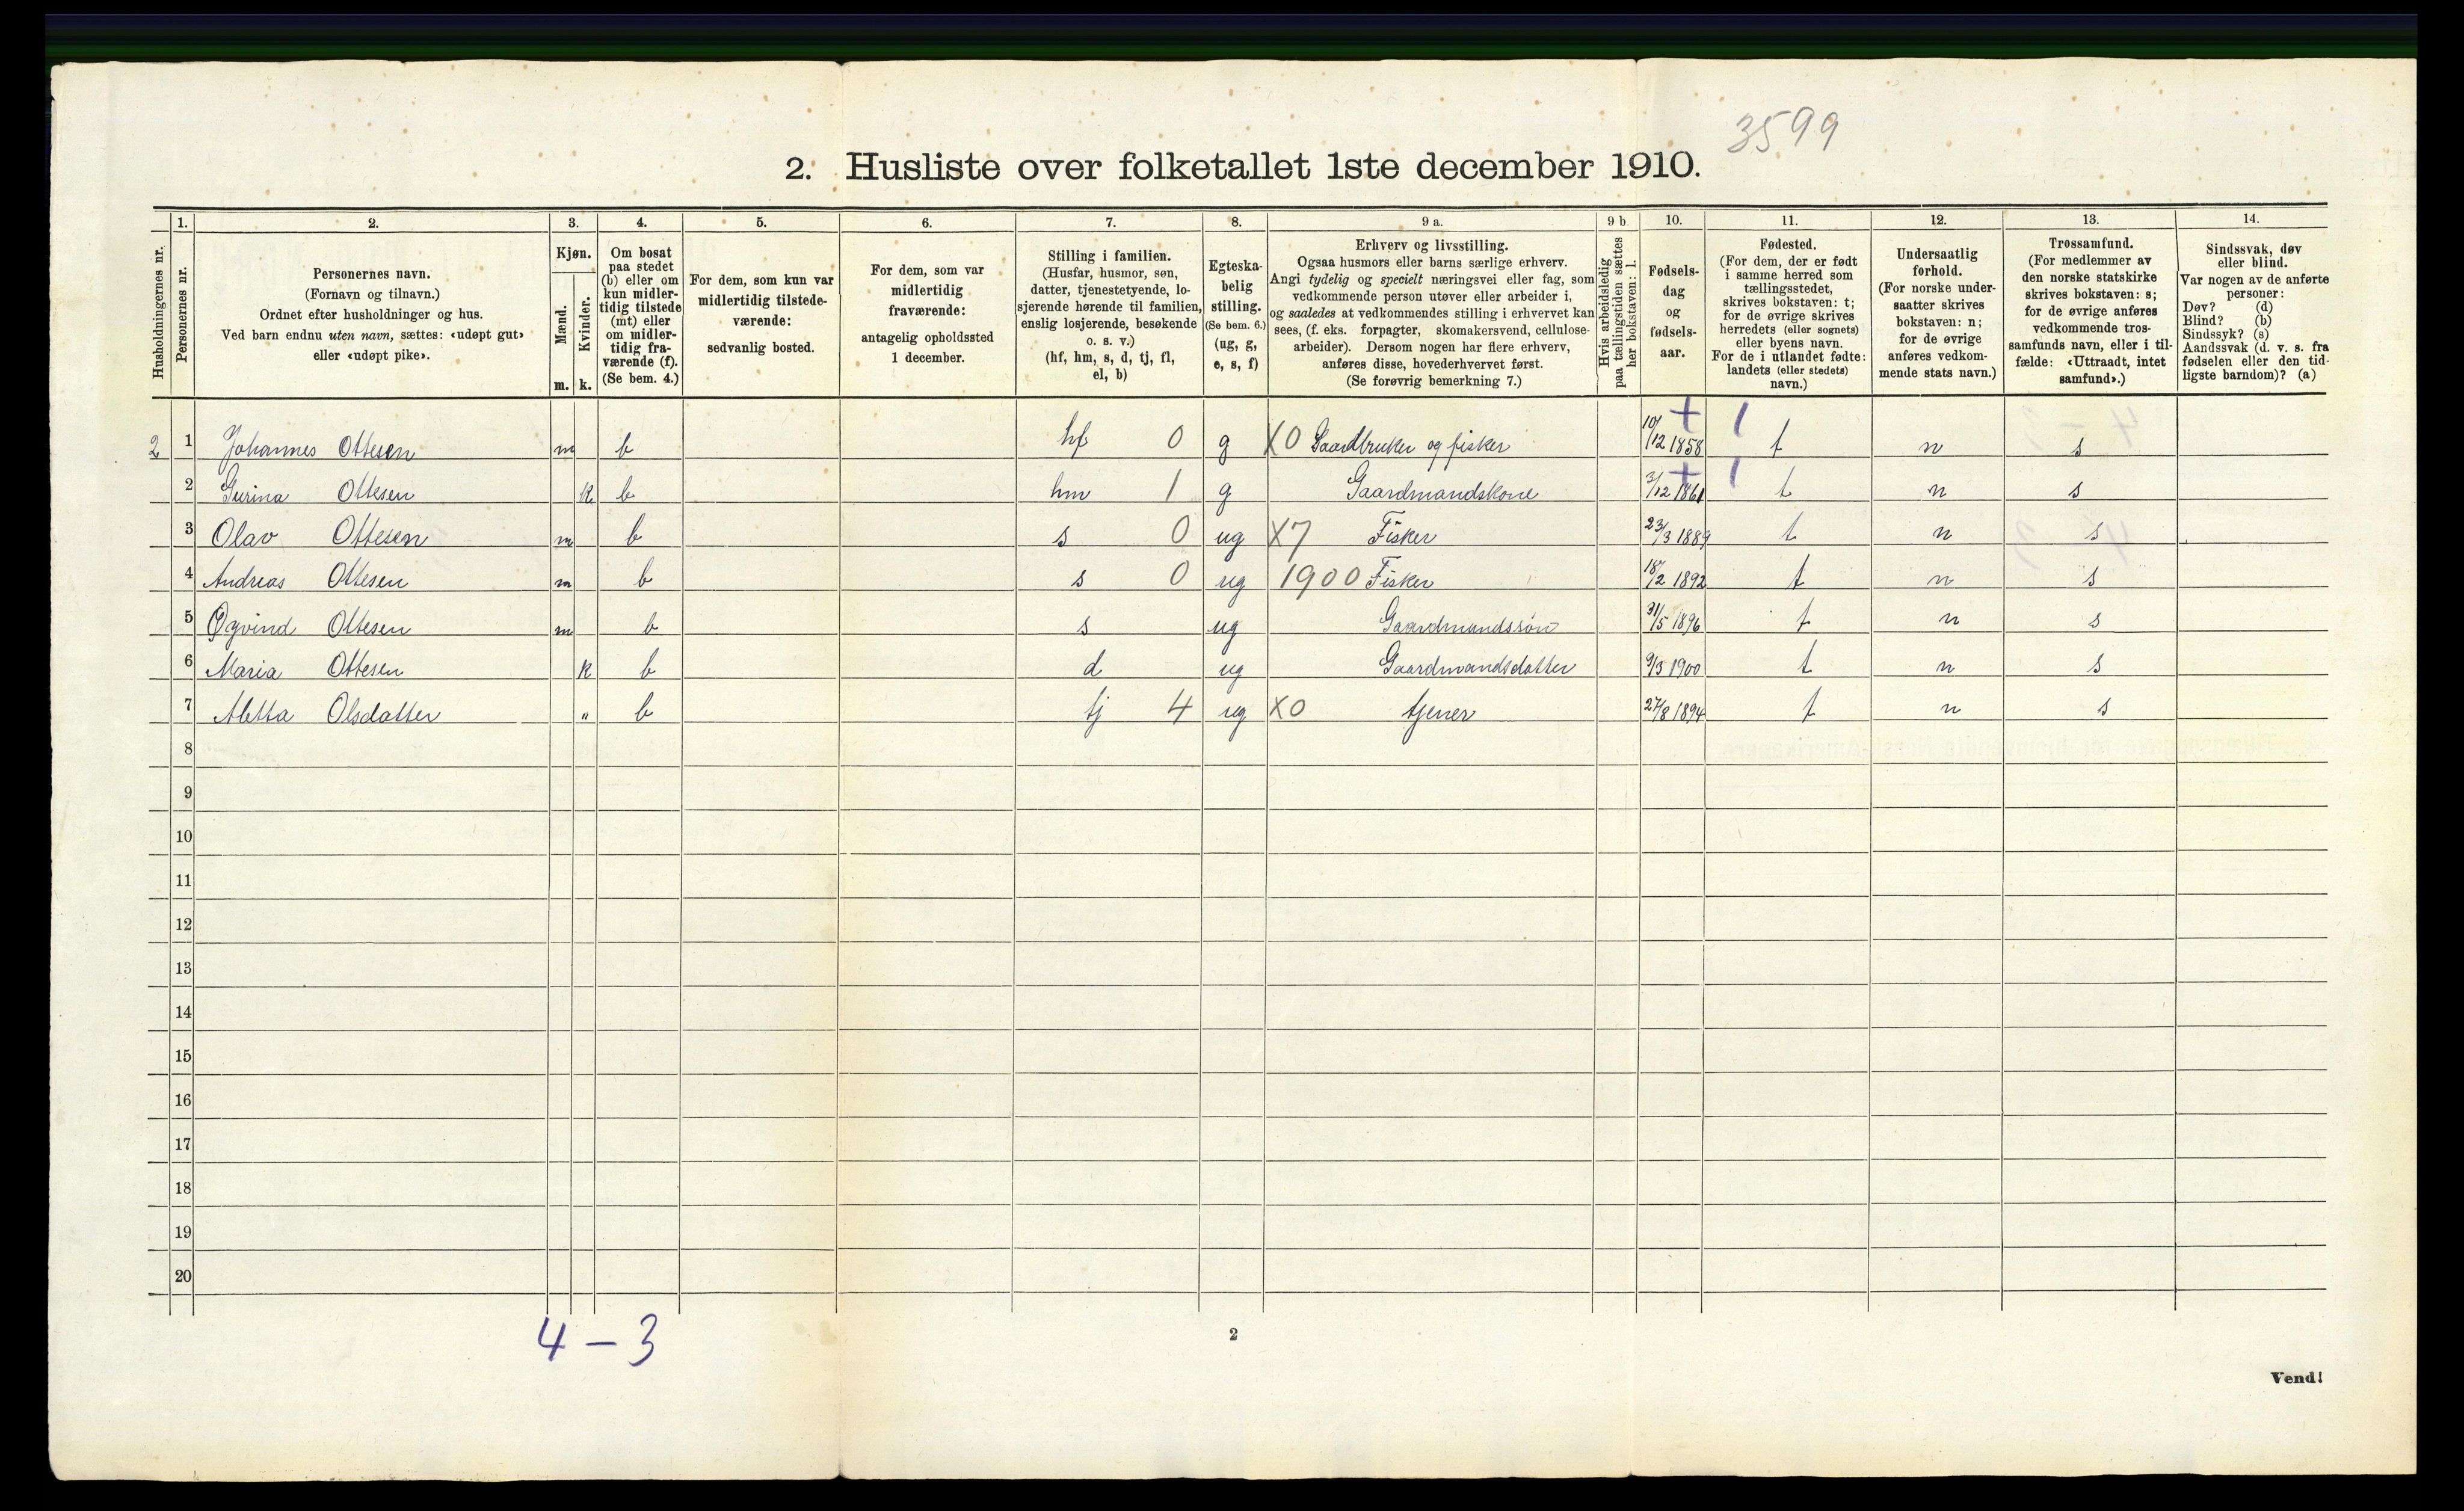 3599
2. Husliste over folketallet 1ste december 1910.
Husholdningernes nr.
1. Personernes nr.
2. Personernes navn.
(Fornavn og tilnavn.)
Ordnet efter husholdninger og hus.
Ved barn endnu uten navn, sættes: «udøpt gut»
eller «udøpt pike».
3. Kjøn.
Mænd. m.
Kvinder. k.
4. Om bosat
paa stedet
(b) eller om
kun midler-
tidig tilstede
(mt) eller
om midler-
tidig fra-
værende (f).
(Se bem. 4.)
5. For dem, som kun var
midlertidig tilstede-
værende:
sedvanlig bosted.
6. For dem, som var
midlertidig
fraværende:
antagelig opholdssted
1 december.
7. Stilling i familien.
(Husfar, husmor, søn,
datter, tjenestetyende, lo-
sjerende hørende til familien,
enslig losjerende, besøkende
o. s. v.)
(hf, hm, s, d, tj, fl,
el, b)
8. Egteska-
belig
stilling.
(Se bem. 6.)
(ug, g,
e, s, f)
9 a. Erhverv og livsstilling.
Ogsaa husmors eller barns særlige erhverv.
Angi tydelig og specielt næringsvei eller fag, som
vedkommende person utøver eller arbeider i,
og saaledes at vedkommendes stilling i erhvervet kan
sees, (f. eks. forpagter, skomakersvend, cellulose-
arbeider). Dersom nogen har flere erhverv,
anføres disse, hovederhvervet først.
(Se forøvrig bemerkning 7.)
9 b Hvis arbeidsledig
paa tællingstiden sættes
her bokstaven: l.
10. Fødsels-
dag
og
fødsels-
aar.
11. Fødested.
(For dem, der er født
i samme herred som
tællingsstedet,
skrives bokstaven: t;
for de øvrige skrives
herredets (eller sognets)
eller byens navn.
For de i utlandet fødte:
landets (eller stedets)
navn.)
12. Undersaatlig
forhold.
(For norske under-
saatter skrives
bokstaven: n;
for de øvrige
anføres vedkom-
mende stats navn.)
13. Trossamfund.
(For medlemmer av
den norske statskirke
skrives bokstaven: s;
for de øvrige anføres
vedkommende tros-
samfunds navn, eller i til-
fælde: «Uttraadt, intet
samfund».)
14. Sindssvak, døv
eller blind.
Var nogen av de anførte
personer:
Døv? (d)
Blind? (b)
Sindssyk? (s)
Aandssvak (d. v. s. fra
fødselen eller den tid-
ligste barndom)? (a)
2 1 Johannes Ottesen m b hf 0 g X0 Gaardbruker og fisker 10/12 1858 + 1 t n s
2 Gurina Ottesen k b hm 1 g Gaardmandskone 3/12 1861 + 1 t n s
3 Olav Ottesen m b s 0 ug X7 Fisker 23/3 1889 t n s
4 Andreas Ottesen m b s 0 ug 1900 Fisker 18/2 1892 t n s
5 Øyvind Ottesen m b s ug Gaardmandssøn 31/5 1896 t n s
6 Maria Ottesen k b d ug Gaardmandsdatter 9/3 1900 t n s
7 Aletta Olsdatter " b tj 4 ug X0 tjener 27/8 1894 t n s
8
9
10
11
12
13
14
15
16
17
18
19
20
4 - 3
2
Vend!